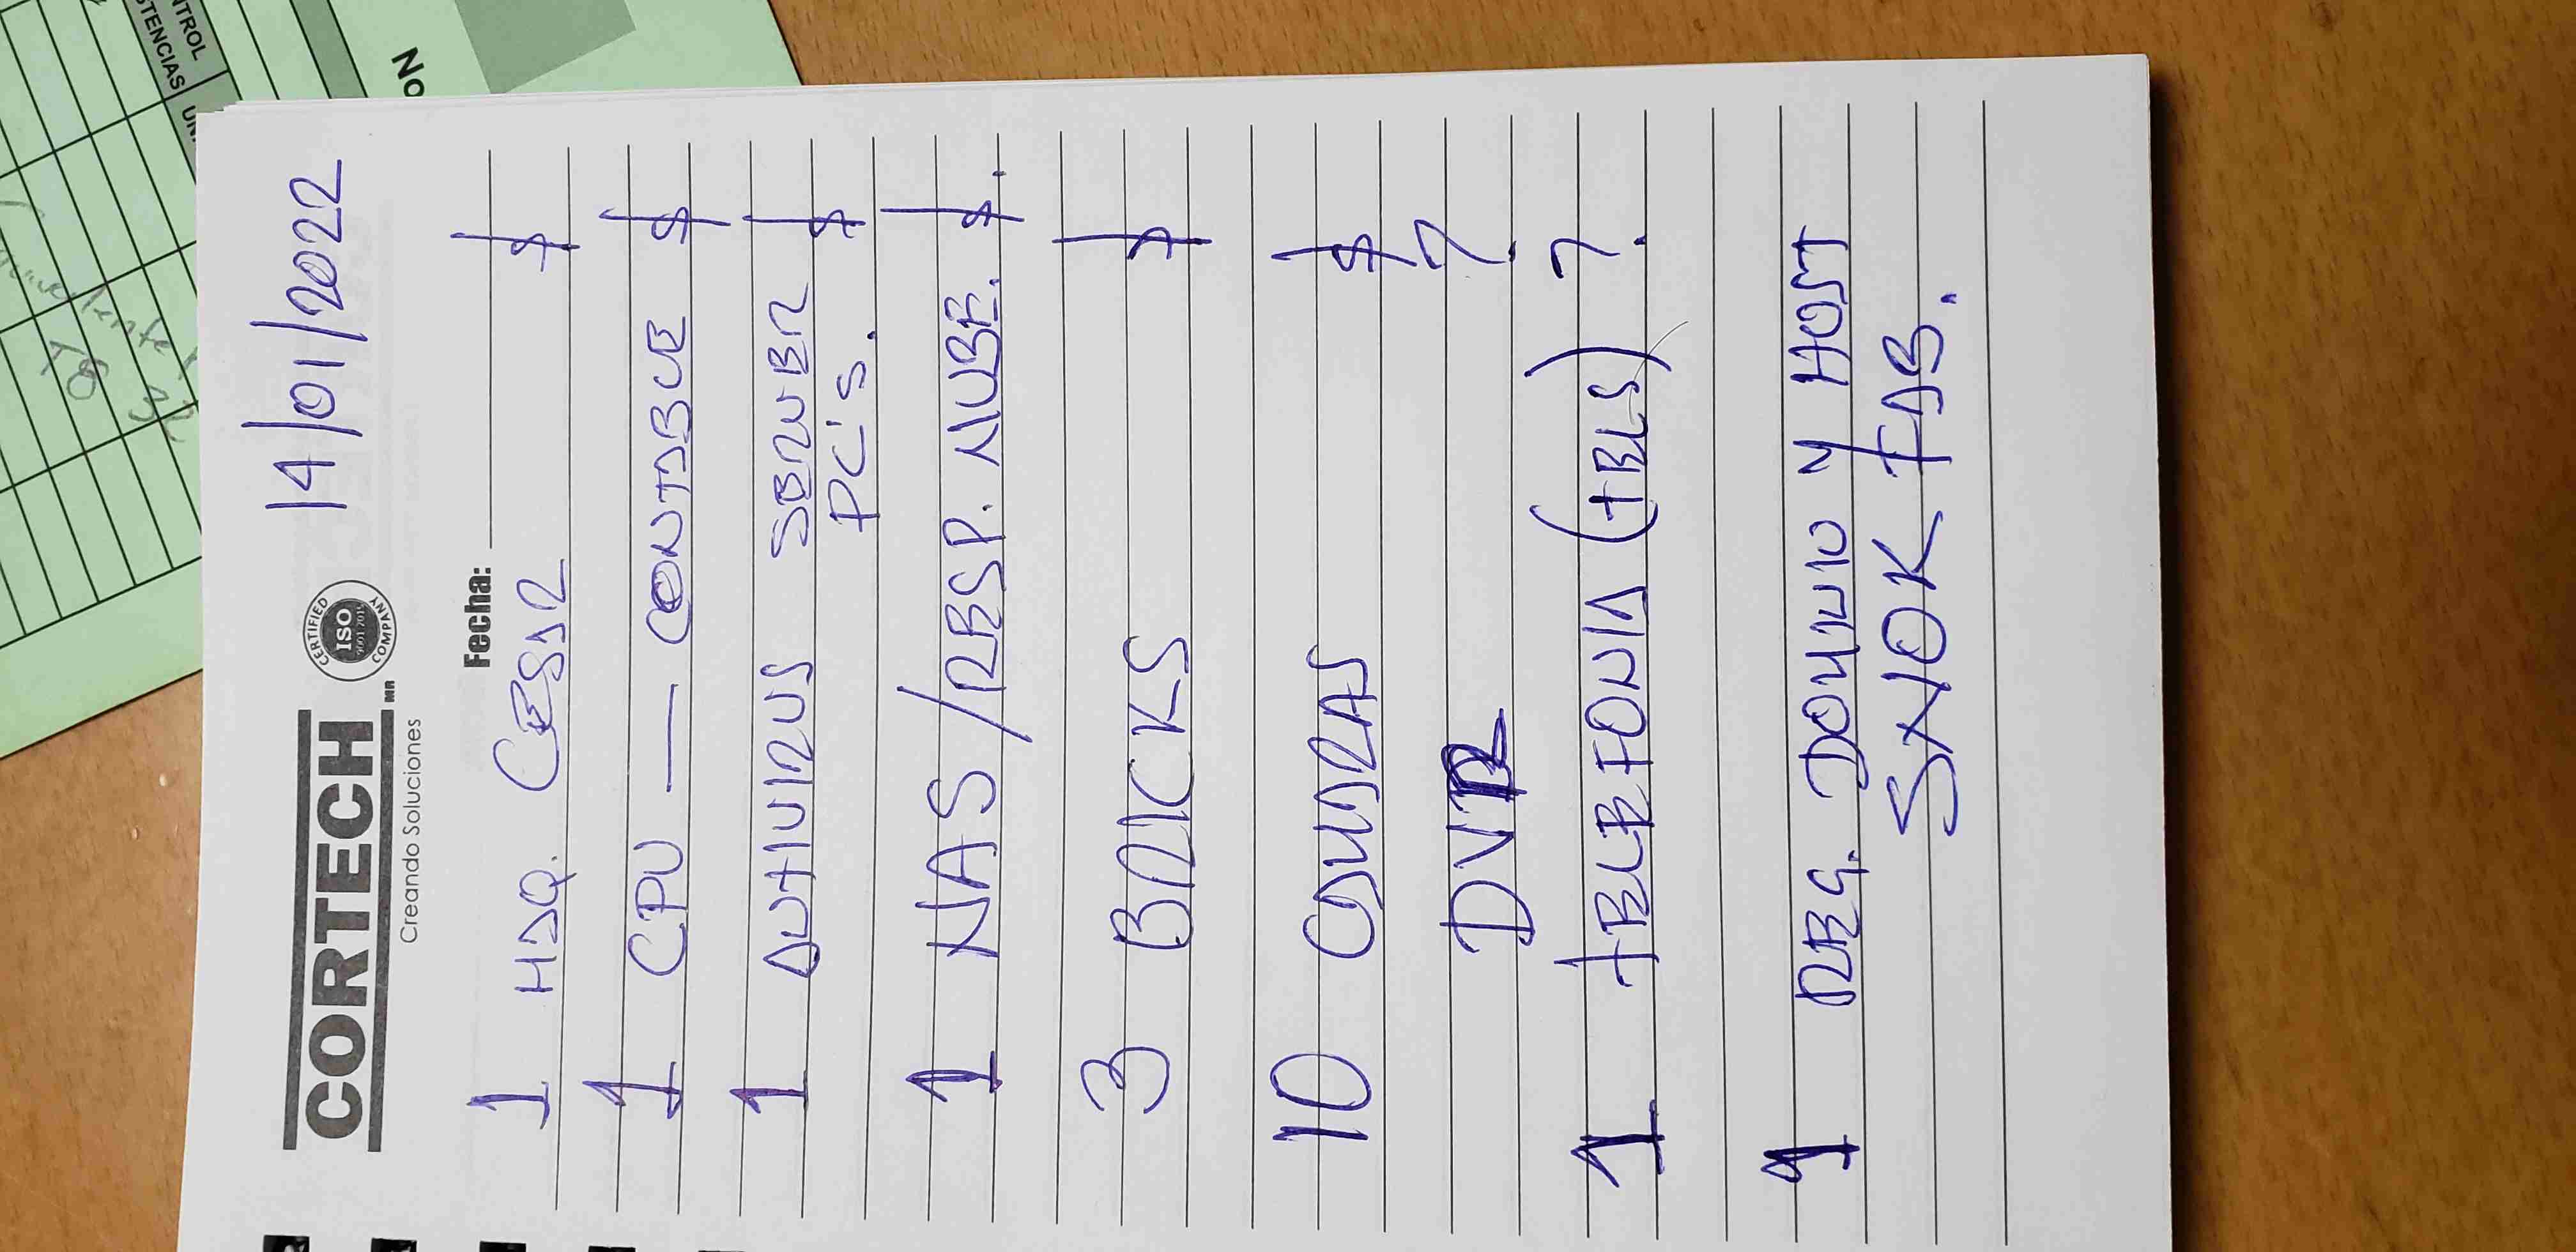 CORTECH MR
Creando Soluciones
CERTIFIED
ISO
9001:2015
COMPANY
14/01/2022
Fecha:
1 MAQ. CESAR $
1 CPU — CONTABLE $
1 ANTIVIRUS SERVER $
PC'S.
1 NAS/RESP. NUBE. $.
3 BRICKS $
10 CAMARAS $
DVR ?
1 TELEFONIA (TELS) ?
1 REG. DOMINIO Y HOST
SNOK FAB.
NTROL
STENCIAS
UNI
No
78
32